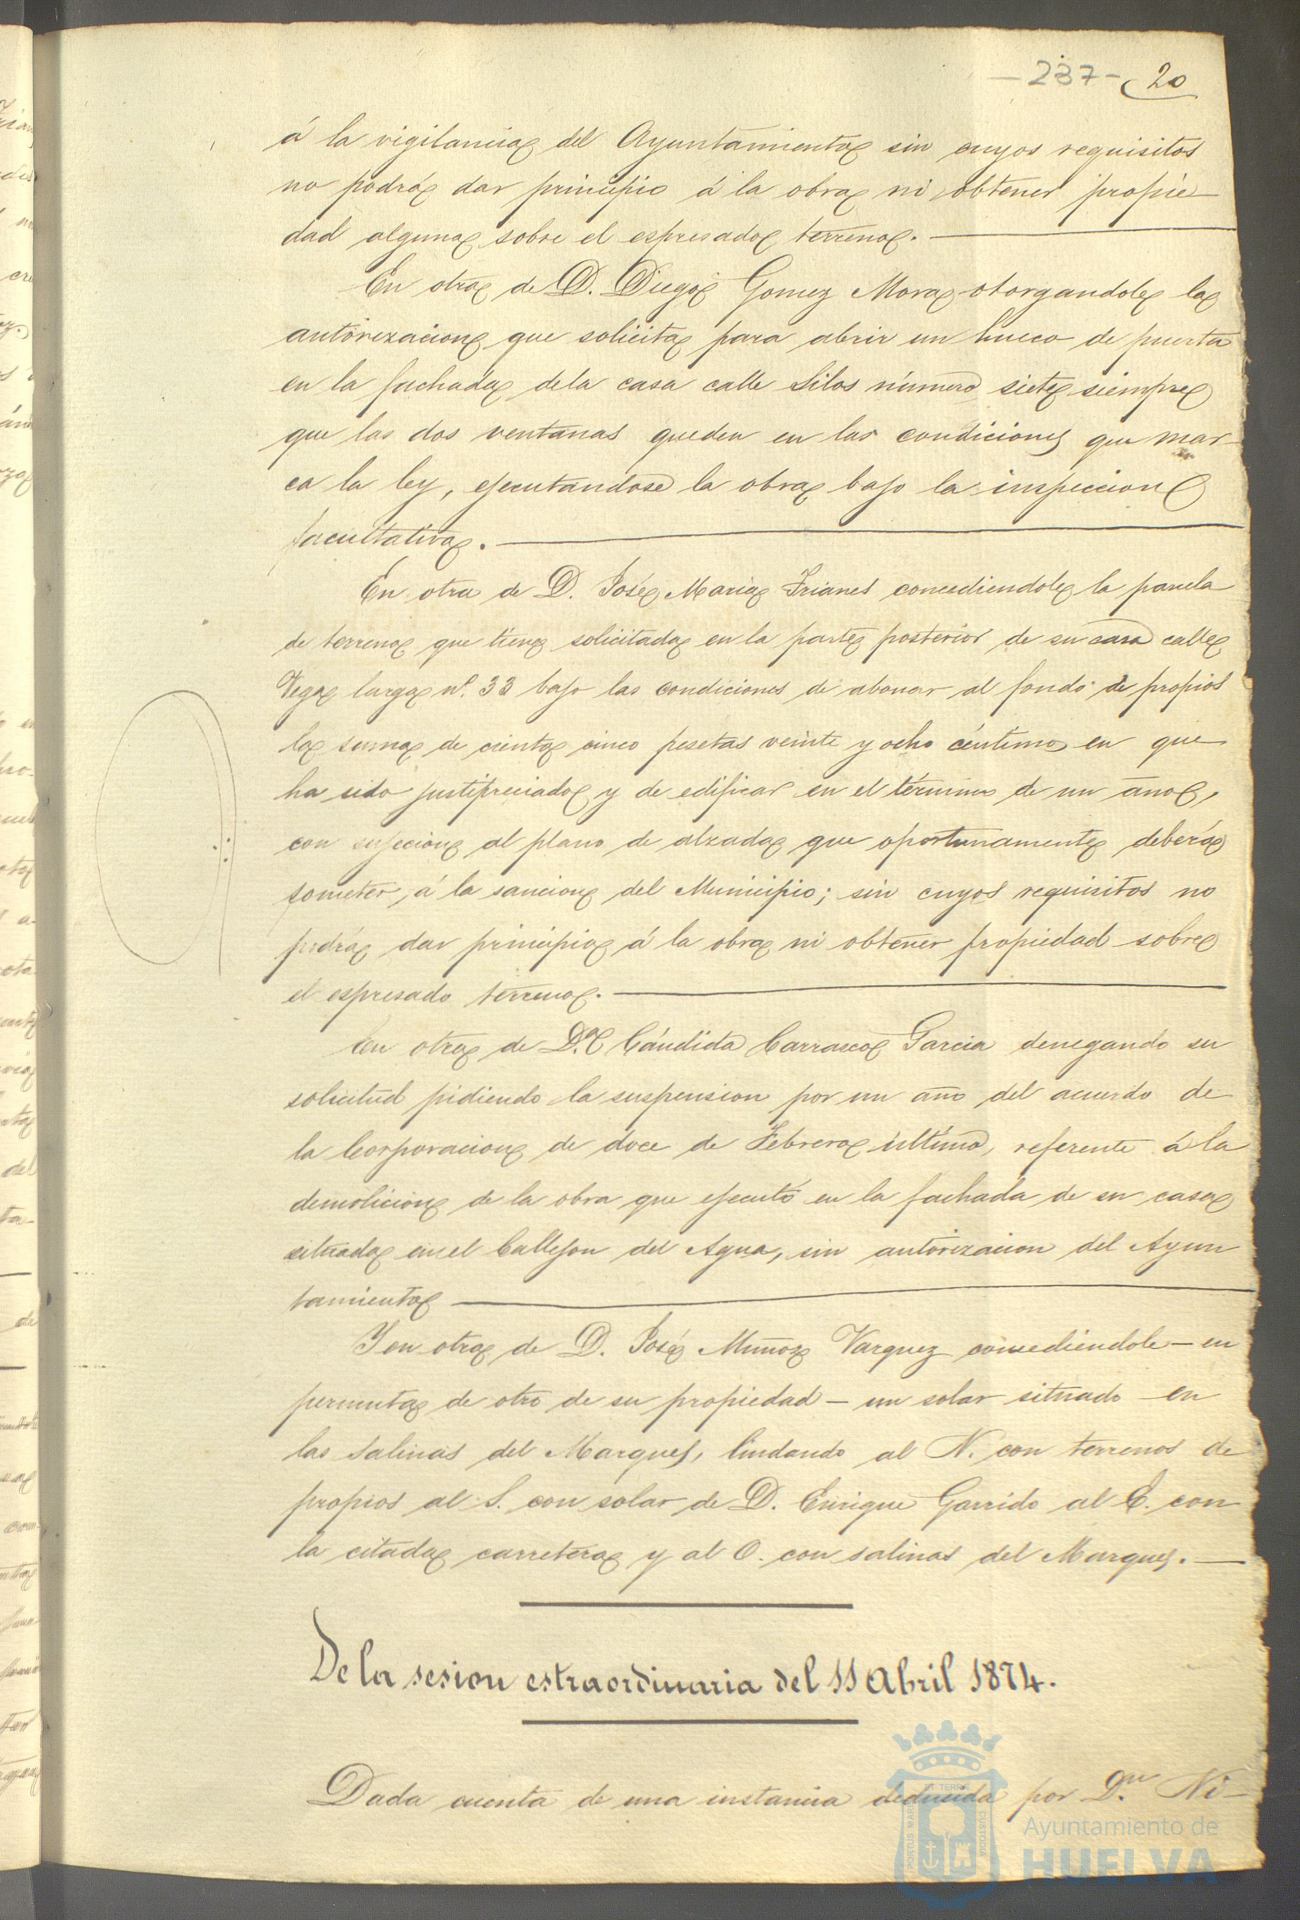 -237- 20
á la vigilancia del Ayuntamiento sin cuyos requisitos
no podrá dar principio á la obra ni obtener propie-
dad alguna sobre el espresado terreno.
En otra de D. Diego Gomez Mora otorgandole la
autorizacion que solicita para abrir un hueco de puerta
en la fachada dela casa calle Silos número siete siempre
que las dos ventanas queden en las condiciones que mar-
ca la ley, ejecutandose la obra bajo la inspeccion
facultativa.
En otra de D. José Maria Frianes concediendole la parcela
de terreno que tiene solicitada en la parte posterior de su casa calle
Vega larga nº. 33 bajo las condiciones de abonar al fondo de propios
la suma de ciento cinco pesetas veinte y ocho céntimos en que
ha sido justipreciado y de edificar en el término de un año,
con sujecion al plano de alzada que oportunamente deberá
someter á la sancion del Municipio; sin cuyos requisitos no
podrá dar principio á la obra ni obtener propiedad sobre
el espresado terreno.
En otra de D.ª Cándida Carrasco Garcia denegando su
solicitud pidiendo la suspension por un año del acuerdo de
la Corporacion de doce de Febrero último, referente á la
demolicion de la obra que ejecutó en la fachada de su casa
situada en el Callejon del Agua, sin autorizacion del Ayun
tamiento
Y en otra de D. José Muñoz Vazquez concediendole - en
permuta de otro de su propiedad - un solar situado en
las Salinas del Marques, lindando al N. con terrenos de
propios al S. con solar de D. Enrique Garrido al E. con
la citada carretera y al O. con salinas del Marques.
De la sesion estraordinaria del 11 Abril 1874.
Dada cuenta de una instancia deducida por D.n Ni-
Ayuntamiento de
HUELVA